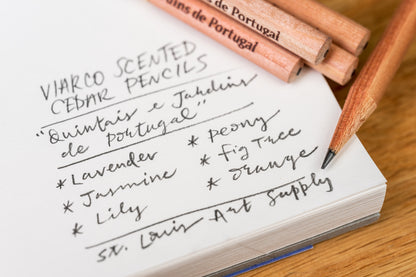 ins de Portugal
dins de Portugal
VIARCO SCENTED
CEDAR PENCILS
"Quintais e Jardins
de Portugal"
* Lavender
* Jasmine
* Lily
* Peony
* Fig Tree
* Orange
St. Louis Art Supply